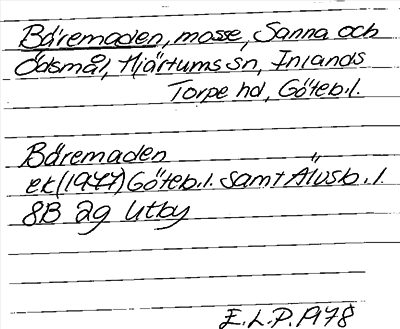 Båremaden, mosse, Sanna och
Ödsmål, Hjärtums sn, Inlands
Torpe hd, Göteb.l.
Båremaden
ek (1977) Göteb.l. samt Älvsb.l.
8B 2g Utby
E.L.P. 1978